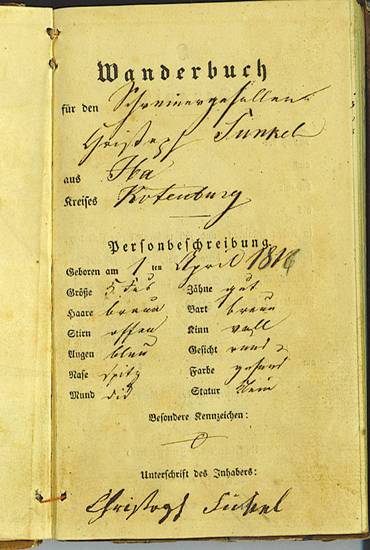 Wanderbuch
für den Schreinergesellen
Christoph Funkel
aus Iba
Kreises Rotenburg
Personbeschreibung.
Geboren am 1 ten April 1816
Größe 5 Fus Zähne gut
Haare braun Bart braun
Stirn offen Kinn voll
Augen blau Gesicht rund
Nase spitz Farbe gesund
Mund dick Statur klein
Besondere Kennzeichen:
Unterschrift des Inhabers:
Christoph